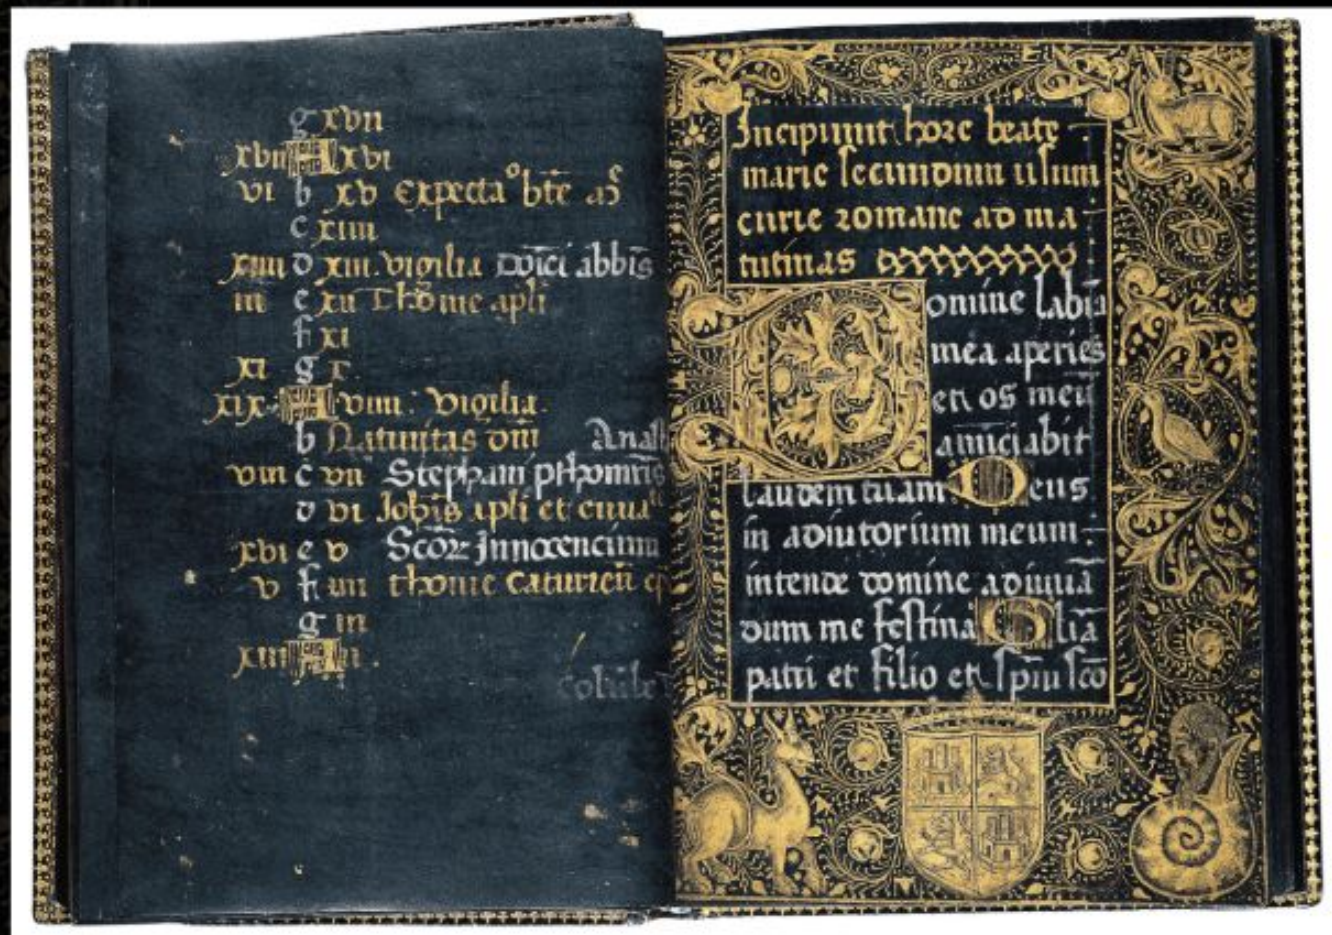 g xvii
xvii A xvi
vi b xv Expecta⁰ bt̄e
c xiiii
xiiii d xiii. vigilia abbīs
iii e xii Thome apli
f xi
xi g x.
xix A viiii. vigilia.
b Natiuitas dn̄i Anast
viii c vii Stephani
d vi Joh̄is apli et
xvi e v Sco℞ Innocencium
v f iiii thome
g iii
xiii A ii.
Incipiunt hore beate
marie secundum usum
curie romane ad ma
tutinas
Domine labia
mea aperies
et os meū
anūciabit
laudem tuam Deus
in adiutorium meum
intende domine adiuuā
dum me festina Glīa
patri et filio et spīui scō